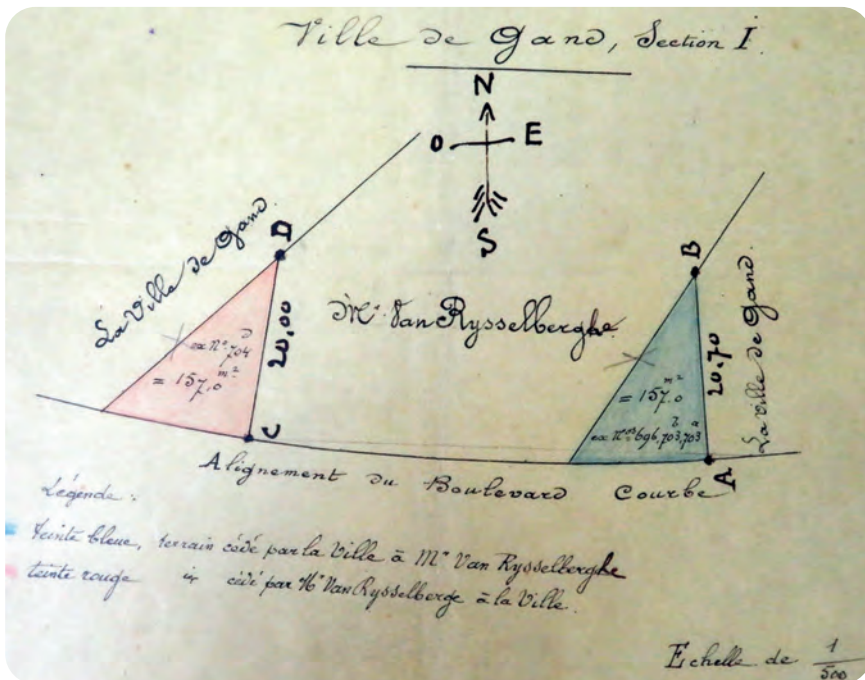 Ville de Gand, Section I.
N
O E
S
La Ville de Gand.
D
20,00
C
ex N° 704 d
= 157,0 m²
Mr Van Rysselberghe.
B
20.70
A
La Ville de Gand.
= 157,0 m²
ex Nos 696, 703 b, 703 a
Alignement du Boulevard Courbe
Légende :
teinte bleue, terrain cédé par la Ville à Mr Van Rysselberghe
teinte rouge cédé par Mr Van Rysselberge à la Ville.
Echelle de 1/500